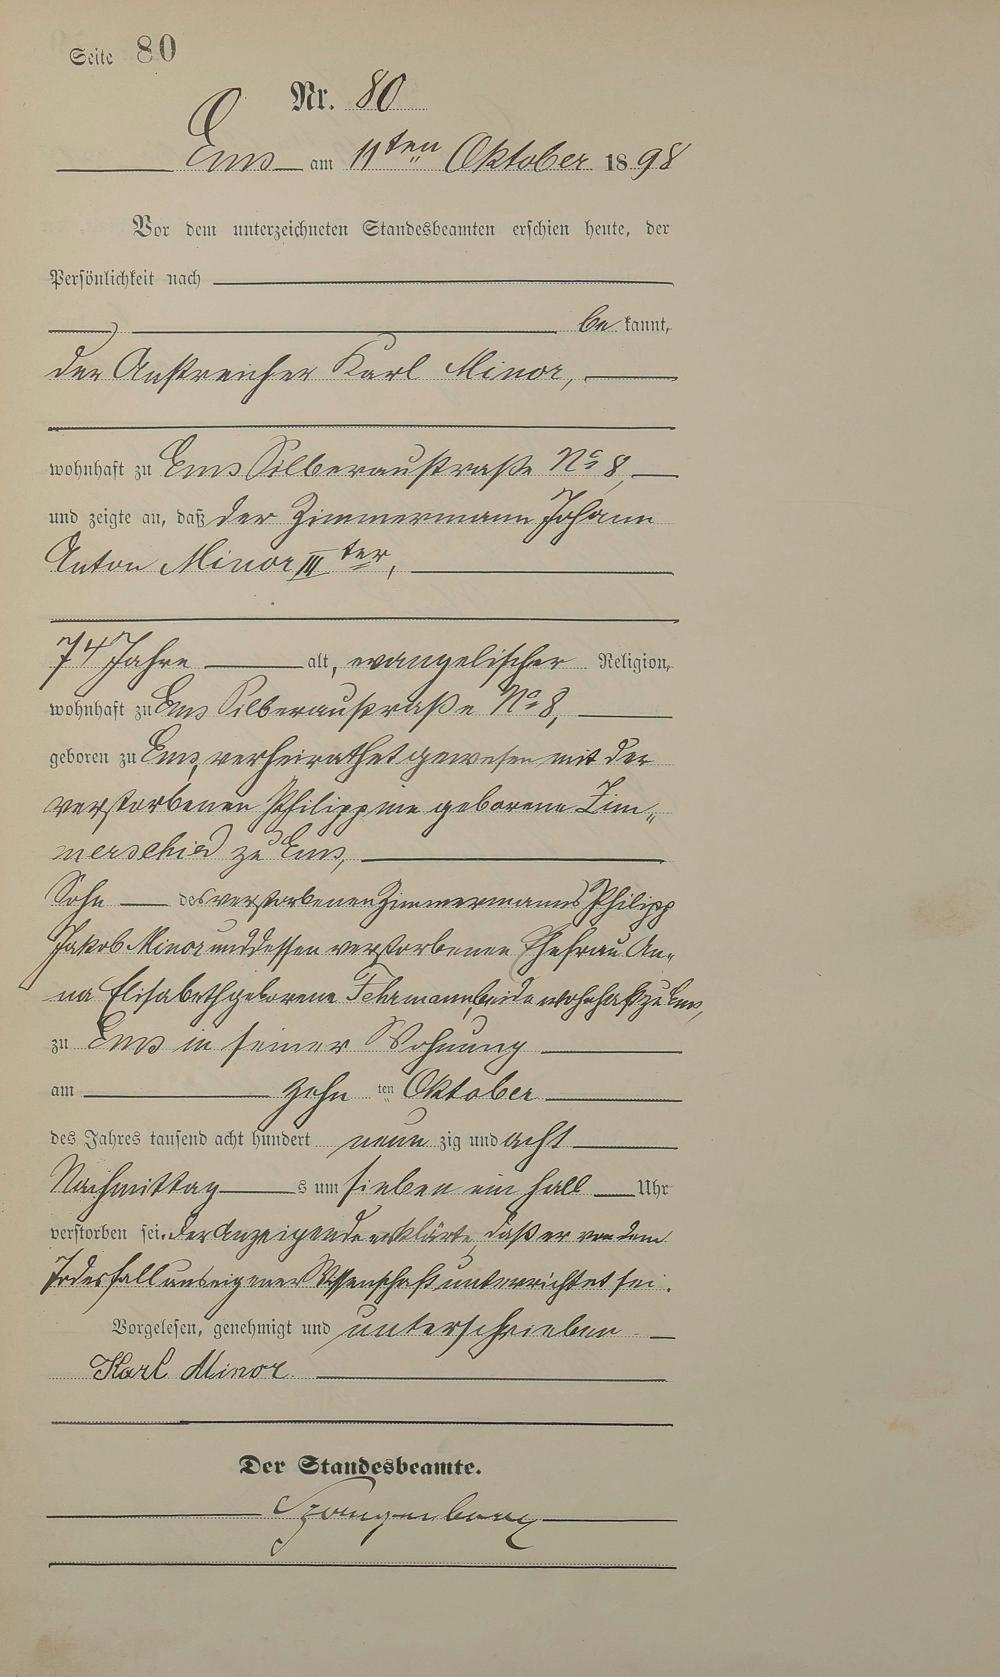 Seite 80
Nr. 80
Ems am 11ten Oktober 1898
Vor dem unterzeichneten Standesbeamten erschien heute, der
Persönlichkeit nach
bekannt,
der Anstreicher Karl Minor,
wohnhaft zu Ems Silberaustraße No 8,
und zeigte an, daß der Zimmermann Johann
Anton Minor IIIter,
74 Jahre alt, evangelischer Religion,
wohnhaft zu Ems Silberaustraße No 8,
geboren zu Ems, verheirathet gewesen mit der
verstorbenen Philippine geborene Zim„
merschied zu Ems,
Sohn des verstorbenen Zimmermanns Philipp
Jakob Minor und dessen verstorbenen Ehefrau An„
na Elisabeth geborene Fehrmann, beide wohnhaft zu Ems,
zu Ems in seiner Wohnung
am zehn ten Oktober
des Jahres tausend acht hundert neun zig und acht
Nachmittags um sieben ein halb Uhr
verstorben sei. Der Anzeigende erklärte, daß er von dem
Todesfall aus eigener Wissenschaft unterrichtet sei.
Vorgelesen, genehmigt und unterschrieben
Karl Minor
Der Standesbeamte.
Spangenberg